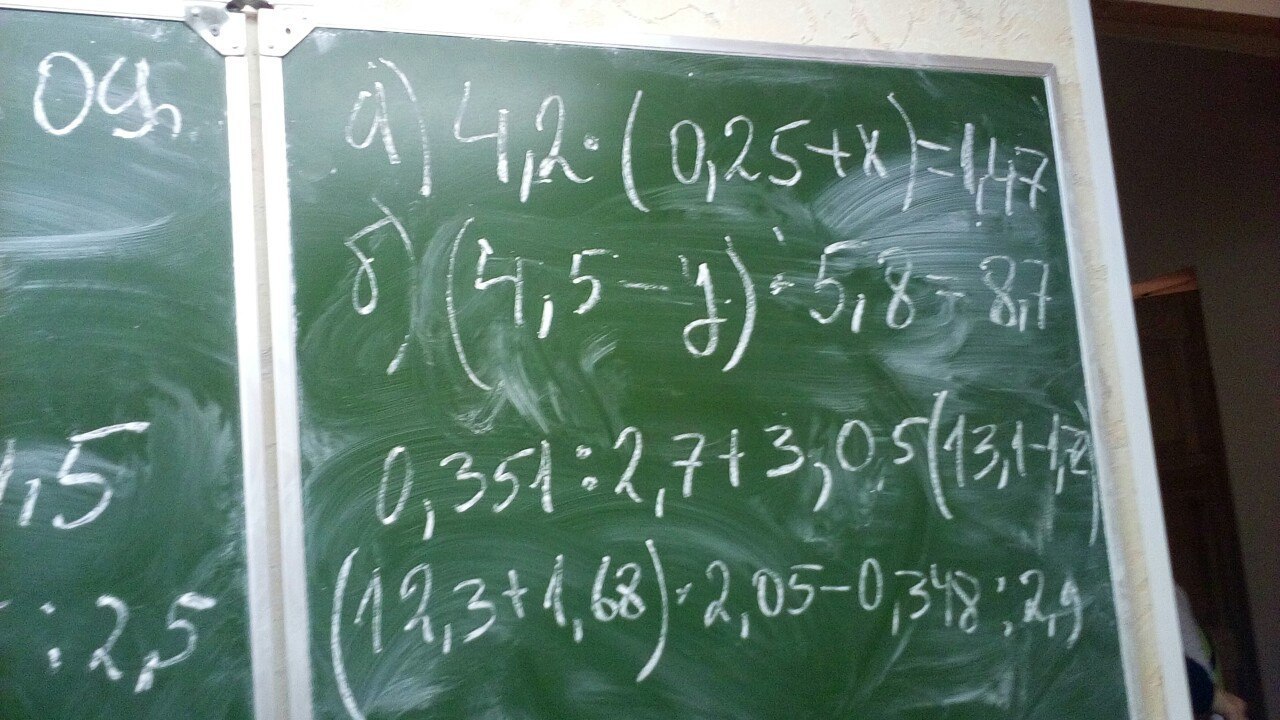 а) 4,2·(0,25+x)=1,47
б) (4,5-y)·5,8=8,7
0,351:2,7+3,05(13,1-1,7)
(12,3+1,68)·2,05-0,348:2,9
,5
:2,5